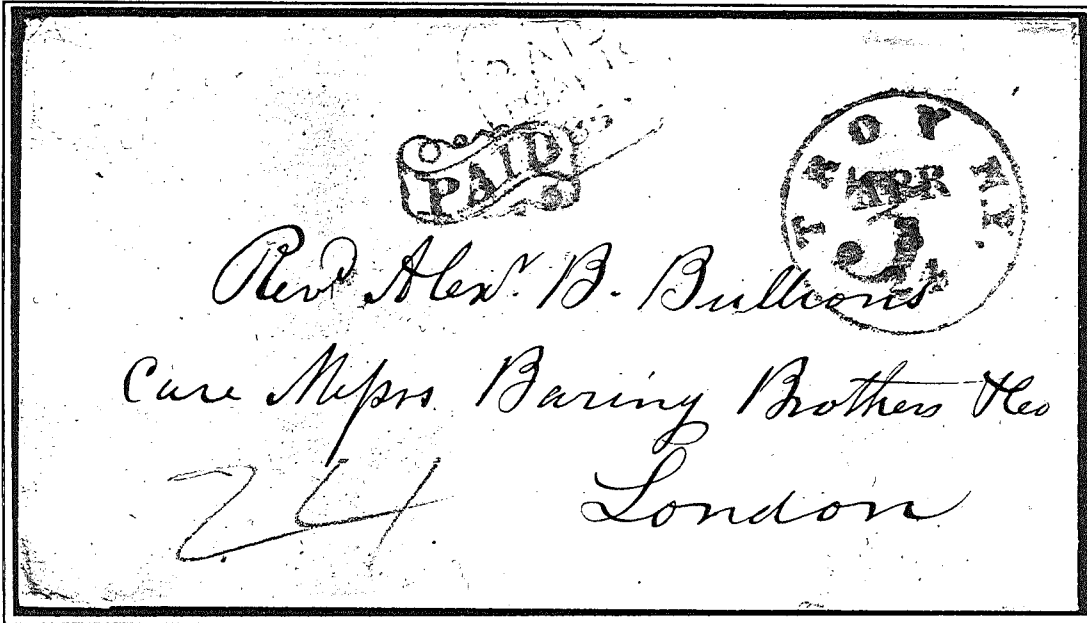 PAID
TROY N.Y.
APR
Revd Alexr. B. Bullions
Care Messrs Baring Brothers & Co
London
24